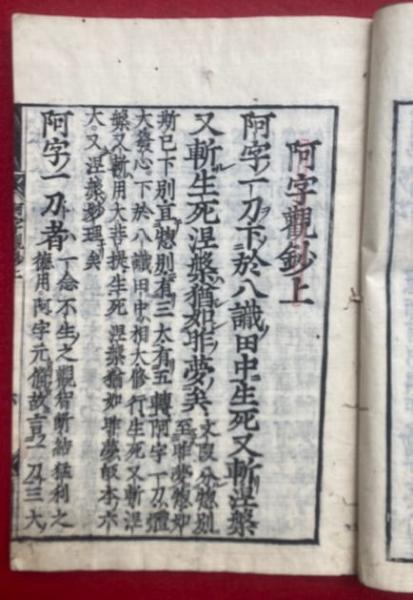 阿字觀鈔上
阿字一刀下於八識田中生死又斬涅槃
又斬生死涅槃猶如昨夢矣 文段分惣別
至昨夢惣如
斯已下別宜惣別有三大有五轉阿字一刀體
大發心下於八識田中相大修行生死又斬涅
槃又斬用大菩提生死涅槃猶如昨夢皈本六
大又涅槃妙理矣
阿字一刀者 一念不生之觀智斷結猛利之
德用阿字元體故言一刀三大